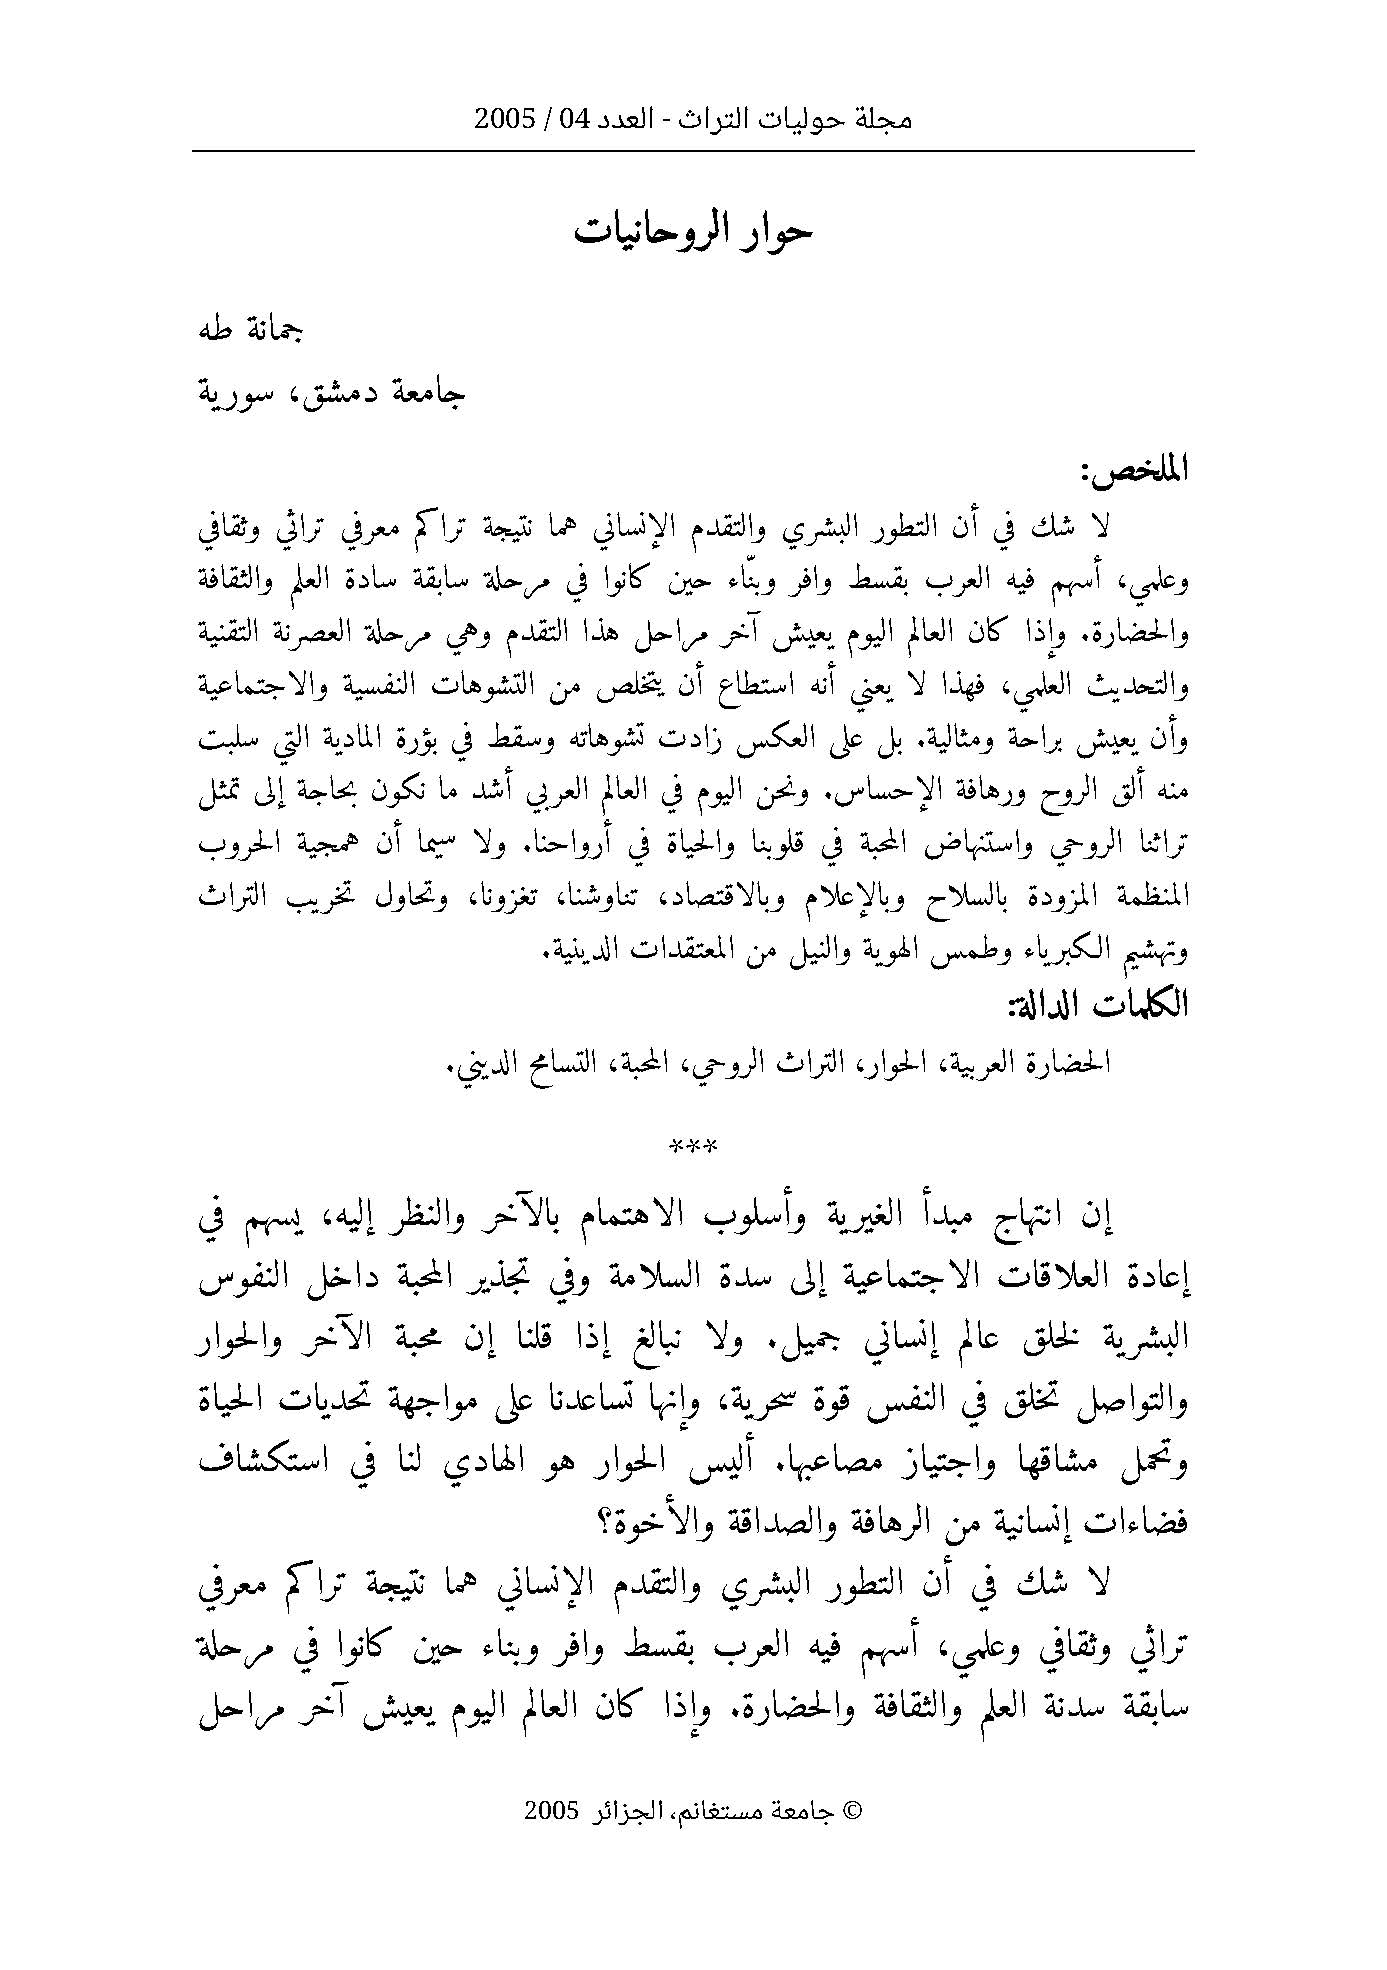 مجلة حوليات التراث - العدد 04 / 2005
حوار الروحانيات
جمانة طه
جامعة دمشق، سورية
الملخص:
لا شك في أن التطور البشري والتقدم الإنساني هما نتيجة تراكم معرفي تراثي وثقافي
وعلمي، أسهم فيه العرب بقسط وافر وبنّاء حين كانوا في مرحلة سابقة سادة العلم والثقافة
والحضارة. وإذا كان العالم اليوم يعيش آخر مراحل هذا التقدم وهي مرحلة العصرنة التقنية
والتحديث العلمي، فهذا لا يعني أنه استطاع أن يتخلص من التشوهات النفسية والاجتماعية
وأن يعيش براحة ومثالية. بل على العكس زادت تشوهاته وسقط في بؤرة المادية التي سلبت
منه ألق الروح ورهافة الإحساس. ونحن اليوم في العالم العربي أشد ما نكون بحاجة إلى تمثل
تراثنا الروحي واستنهاض المحبة في قلوبنا والحياة في أرواحنا. ولا سيما أن همجية الحروب
المنظمة المزودة بالسلاح وبالإعلام وبالاقتصاد، تناوشنا، تغزونا، وتحاول تخريب التراث
وتهشيم الكبرياء وطمس الهوية والنيل من المعتقدات الدينية.
الكلمات الدالة:
الحضارة العربية، الحوار، التراث الروحي، المحبة، التسامح الديني.
***
إن انتهاج مبدأ الغيرية وأسلوب الاهتمام بالآخر والنظر إليه، يسهم في
إعادة العلاقات الاجتماعية إلى سدة السلامة وفي تجذير المحبة داخل النفوس
البشرية لخلق عالم إنساني جميل. ولا نبالغ إذا قلنا إن محبة الآخر والحوار
والتواصل تخلق في النفس قوة سحرية، وإنها تساعدنا على مواجهة تحديات الحياة
وتحمل مشاقها واجتياز مصاعبها. أليس الحوار هو الهادي لنا في استكشاف
فضاءات إنسانية من الرهافة والصداقة والأخوة؟
لا شك في أن التطور البشري والتقدم الإنساني هما نتيجة تراكم معرفي
تراثي وثقافي وعلمي، أسهم فيه العرب بقسط وافر وبناء حين كانوا في مرحلة
سابقة سدنة العلم والثقافة والحضارة. وإذا كان العالم اليوم يعيش آخر مراحل
© جامعة مستغانم، الجزائر 2005